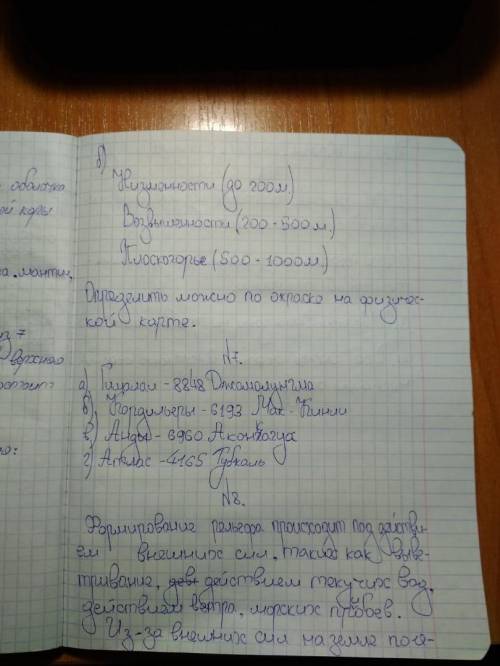 оболочка
ой коры
а, мантии,
верхнего
б)
Низменности (до 200м)
Возвышенности (200-500м.)
Плоскогорье (500-1000м.)
Определить можно по окраске на физичес-
кой карте.
№7.
а) Гималаи - 8848 Джомолунгма
б) Кордильеры - 6193 Мак-Кинли
в) Анды - 6960 Аконкагуа
г) Атлас - 4165 Тубкаль
№8.
Формирование рельефа происходит под действи-
ем внешних сил, таких как выве-
тривание, действием текучих вод,
действием ветра, морских прибоев.
Из-за внешних сил на земле поя-